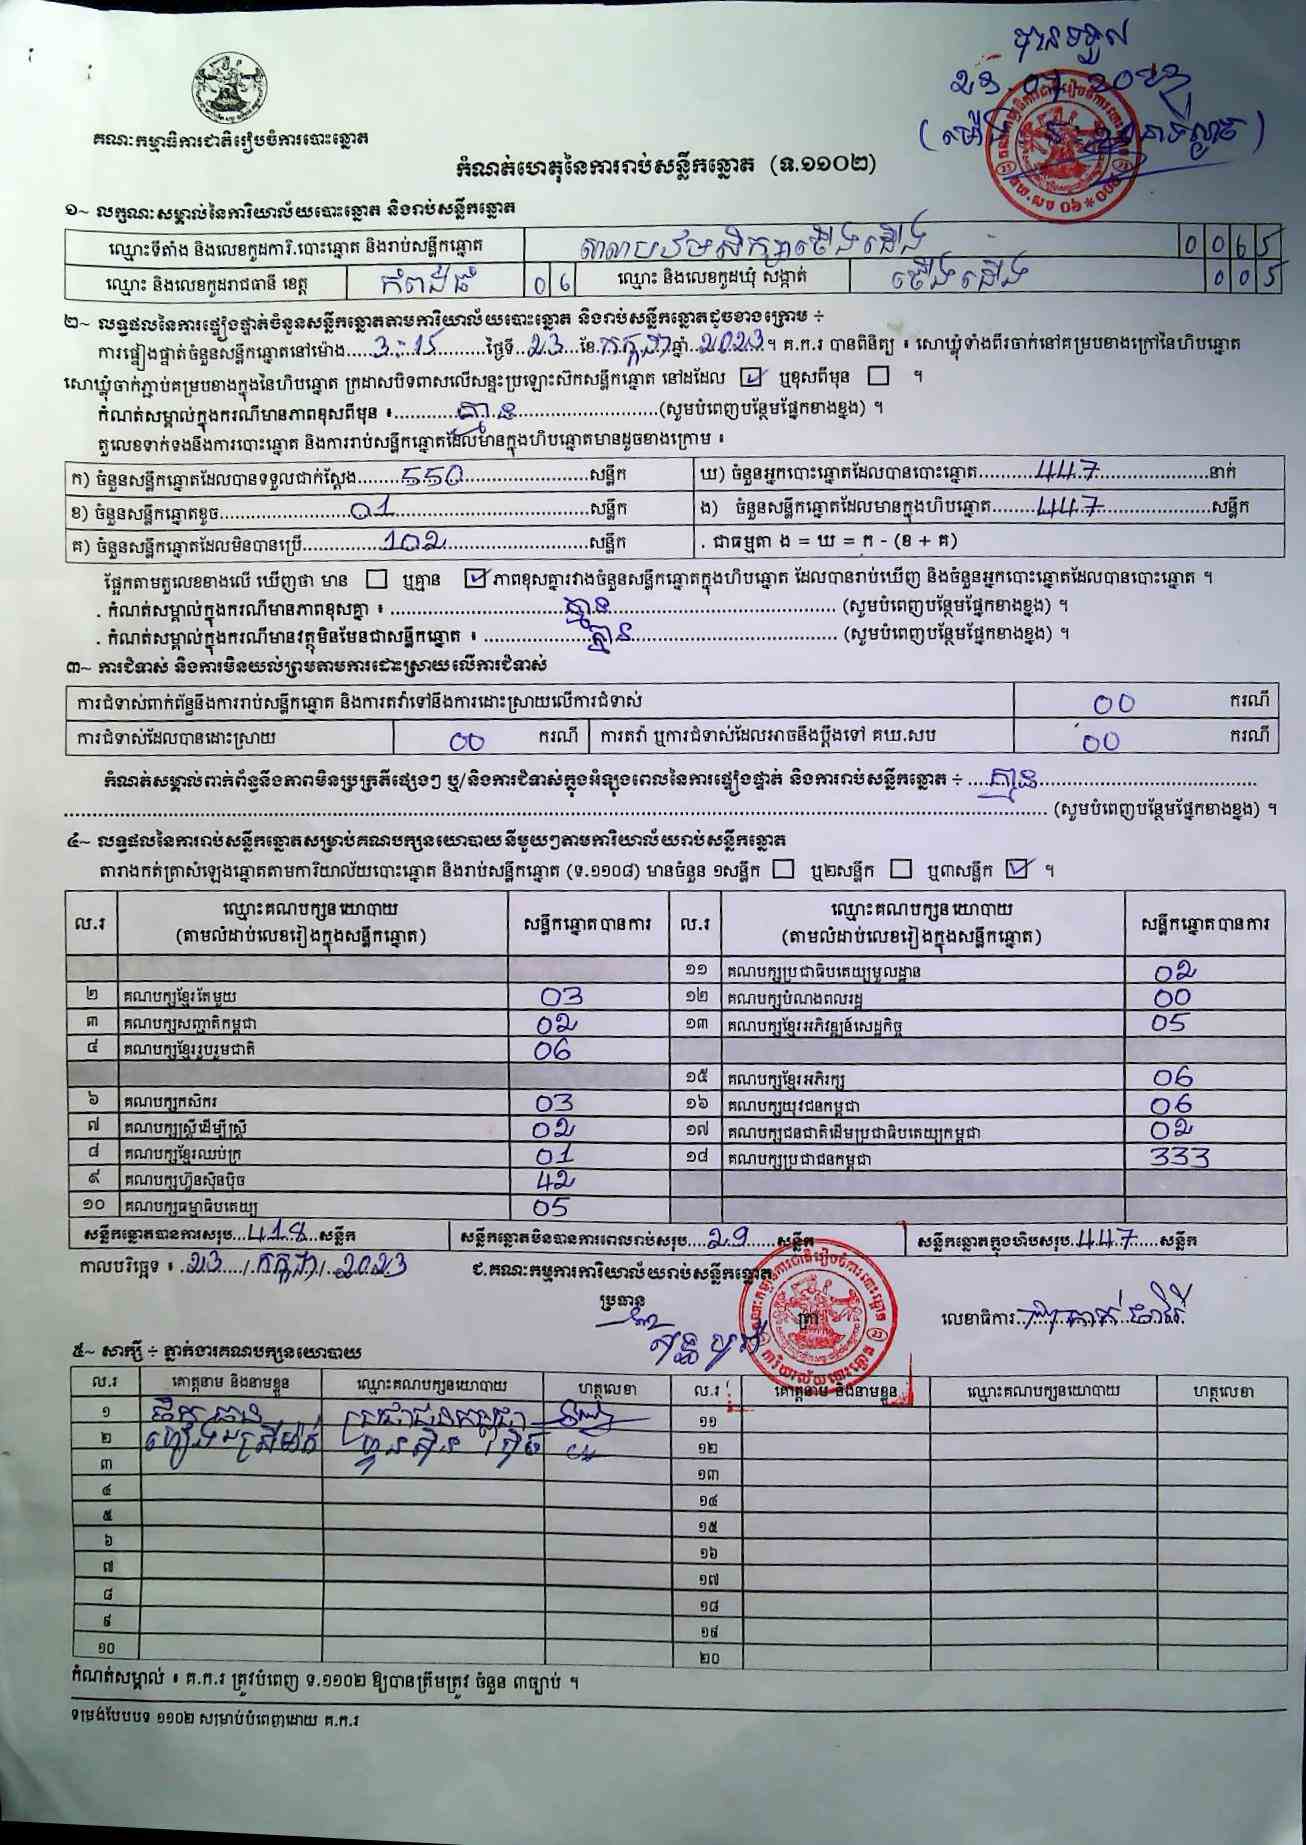 បានទទួល
គណៈកម្មាធិការជាតិរៀបចំការបោះឆ្នោត
កំណត់ហេតុនៃការរាប់សន្លឹកឆ្នោត (ទ.១១០២)
១~ លក្ខណៈសម្គាល់នៃការិយាល័យបោះឆ្នោត និងរាប់សន្លឹកឆ្នោត
ឈ្មោះទីតាំង និងលេខកូដការិ.បោះឆ្នោត និងរាប់សន្លឹកឆ្នោត សាលាបឋមសិក្សាជើងដើង 0065
ឈ្មោះ និងលេខកូដរាជធានី ខេត្ត កំពង់ធំ 06 ឈ្មោះ និងលេខកូដឃុំ សង្កាត់ ជើងដើង 005
២~ លទ្ធផលនៃការផ្ទៀងផ្ទាត់ចំនួនសន្លឹកឆ្នោតតាមការិយាល័យបោះឆ្នោត និងរាប់សន្លឹកឆ្នោតដូចខាងក្រោម ÷
ការផ្ទៀងផ្ទាត់ចំនួនសន្លឹកឆ្នោតនៅម៉ោង...3:15...ថ្ងៃទី..23..ខែ.កក្កដា.ឆ្នាំ..2023.។ គ.ក.រ បានពិនិត្យ ៖ សោឃ្លុំទាំងពីរចាក់នៅគម្របខាងក្រៅនៃហិបឆ្នោត
សោឃ្លុំចាក់ភ្ជាប់គម្របខាងក្នុងនៃហិបឆ្នោត ក្រដាសបិទពាសលើសន្ទះប្រឡោះស៊កសន្លឹកឆ្នោត នៅដដែល ☑ ឬខុសពីមុន ☐ ។
កំណត់សម្គាល់ក្នុងករណីមានភាពខុសពីមុន ៖...គ្មាន...(សូមបំពេញបន្ថែមផ្នែកខាងខ្នង) ។
តួលេខទាក់ទងនឹងការបោះឆ្នោត និងការរាប់សន្លឹកឆ្នោតដែលមានក្នុងហិបឆ្នោតមានដូចខាងក្រោម ៖
ក) ចំនួនសន្លឹកឆ្នោតដែលបានទទួលជាក់ស្តែង...550...សន្លឹក ឃ) ចំនួនអ្នកបោះឆ្នោតដែលបានបោះឆ្នោត...447...នាក់
ខ) ចំនួនសន្លឹកឆ្នោតខូច...01...សន្លឹក ង) ចំនួនសន្លឹកឆ្នោតដែលមានក្នុងហិបឆ្នោត...447...សន្លឹក
គ) ចំនួនសន្លឹកឆ្នោតដែលមិនបានប្រើ...102...សន្លឹក . ជាធម្មតា ង = ឃ = ក - (ខ + គ)
ផ្អែកតាមតួលេខខាងលើ ឃើញថា មាន ☐ ឬគ្មាន ☑ ភាពខុសគ្នារវាងចំនួនសន្លឹកឆ្នោតក្នុងហិបឆ្នោត ដែលបានរាប់ឃើញ និងចំនួនអ្នកបោះឆ្នោតដែលបានបោះឆ្នោត ។
. កំណត់សម្គាល់ក្នុងករណីមានភាពខុសគ្នា ៖ ...គ្មាន... (សូមបំពេញបន្ថែមផ្នែកខាងខ្នង) ។
. កំណត់សម្គាល់ក្នុងករណីមានវត្ថុមិនមែនជាសន្លឹកឆ្នោត ៖ ...គ្មាន... (សូមបំពេញបន្ថែមផ្នែកខាងខ្នង) ។
៣~ ការជំទាស់ និងការមិនយល់ព្រមតាមការដោះស្រាយលើការជំទាស់
ការជំទាស់ពាក់ព័ន្ធនឹងការរាប់សន្លឹកឆ្នោត និងការតវ៉ាទៅនឹងការដោះស្រាយលើការជំទាស់ 00 ករណី
ការជំទាស់ដែលបានដោះស្រាយ 00 ករណី ការតវ៉ា ឬការជំទាស់ដែលអាចនឹងប្តឹងទៅ គឃ.សប 00 ករណី
កំណត់សម្គាល់ពាក់ព័ន្ធនឹងភាពមិនប្រក្រតីផ្សេងៗ ឬ/និងការជំទាស់ក្នុងអំឡុងពេលនៃការផ្ទៀងផ្ទាត់ និងការរាប់សន្លឹកឆ្នោត ÷ ...គ្មាន...
(សូមបំពេញបន្ថែមផ្នែកខាងខ្នង) ។
៤~ លទ្ធផលនៃការរាប់សន្លឹកឆ្នោតសម្រាប់គណបក្សនយោបាយនីមួយៗតាមការិយាល័យរាប់សន្លឹកឆ្នោត
តារាងកត់ត្រាសំឡេងឆ្នោតតាមការិយាល័យបោះឆ្នោត និងរាប់សន្លឹកឆ្នោត (ទ.១១០៨) មានចំនួន ១សន្លឹក ☐ ឬ២សន្លឹក ☐ ឬ៣សន្លឹក ☑ ។
ល.រ ឈ្មោះគណបក្សនយោបាយ (តាមលំដាប់លេខរៀងក្នុងសន្លឹកឆ្នោត) សន្លឹកឆ្នោតបានការ ល.រ ឈ្មោះគណបក្សនយោបាយ (តាមលំដាប់លេខរៀងក្នុងសន្លឹកឆ្នោត) សន្លឹកឆ្នោតបានការ
១១ គណបក្សប្រជាធិបតេយ្យមូលដ្ឋាន 02
២ គណបក្សខ្មែរតែមួយ 03 ១២ គណបក្សបំណងពលរដ្ឋ 00
៣ គណបក្សសញ្ជាតិកម្ពុជា 02 ១៣ គណបក្សខ្មែរអភិវឌ្ឍន៍សេដ្ឋកិច្ច 05
៤ គណបក្សខ្មែររួបរួមជាតិ 06
១៥ គណបក្សខ្មែរអភិរក្ស 06
៦ គណបក្សកសិករ 03 ១៦ គណបក្សយុវជនកម្ពុជា 06
៧ គណបក្សស្ត្រីដើម្បីស្ត្រី 02 ១៧ គណបក្សជនជាតិដើមប្រជាធិបតេយ្យកម្ពុជា 02
៨ គណបក្សខ្មែរឈប់ក្រ 01 ១៨ គណបក្សប្រជាជនកម្ពុជា 333
៩ គណបក្សហ៊្វុនស៊ិនប៉ិច 42
១០ គណបក្សធម្មាធិបតេយ្យ 05
សន្លឹកឆ្នោតបានការសរុប...418...សន្លឹក សន្លឹកឆ្នោតមិនបានការពេលរាប់សរុប...29...សន្លឹក សន្លឹកឆ្នោតក្នុងហិបសរុប...447...សន្លឹក
កាលបរិច្ឆេទ ៖ .23../.កក្កដា./..2023 ជ.គណៈកម្មការការិយាល័យរាប់សន្លឹកឆ្នោត
ប្រធាន
លេខាធិការ
៥~ សាក្សី ÷ ភ្នាក់ងារគណបក្សនយោបាយ
ល.រ គោត្តនាម និងនាមខ្លួន ឈ្មោះគណបក្សនយោបាយ ហត្ថលេខា ល.រ គោត្តនាម និងនាមខ្លួន ឈ្មោះគណបក្សនយោបាយ ហត្ថលេខា
១ ប្រជាជនកម្ពុជា ១១
២ ហ្វុនស៊ិនប៉ិច ១២
៣ ១៣
៤ ១៤
៥ ១៥
៦ ១៦
៧ ១៧
៨ ១៨
៩ ១៩
១០ ២០
កំណត់សម្គាល់ ៖ គ.ក.រ ត្រូវបំពេញ ទ.១១០២ ឱ្យបានត្រឹមត្រូវ ចំនួន ៣ច្បាប់ ។
ទម្រង់បែបបទ ១១០២ សម្រាប់បំពេញដោយ គ.ក.រ